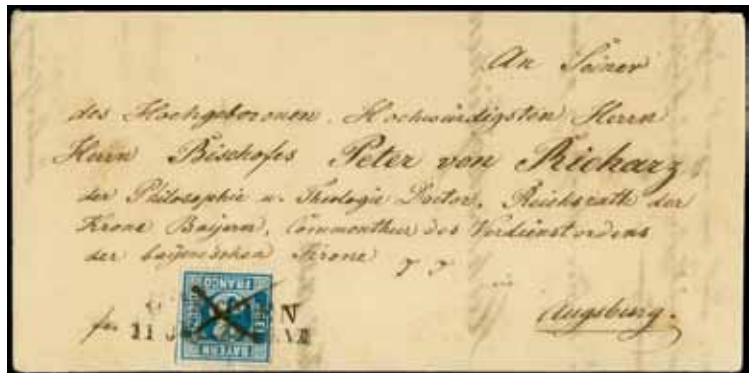 An Seiner
des Hochgeborenen, Hochwürdigsten Herrn
Herrn Bischofes Peter von Richarz
der Philosophie u. Theologie Doctor, Reichsrath der
Krone Baijern, Commenthur des Verdienstordens
der baijerischen Krone
Augsburg.
FRANCO
BAYERN